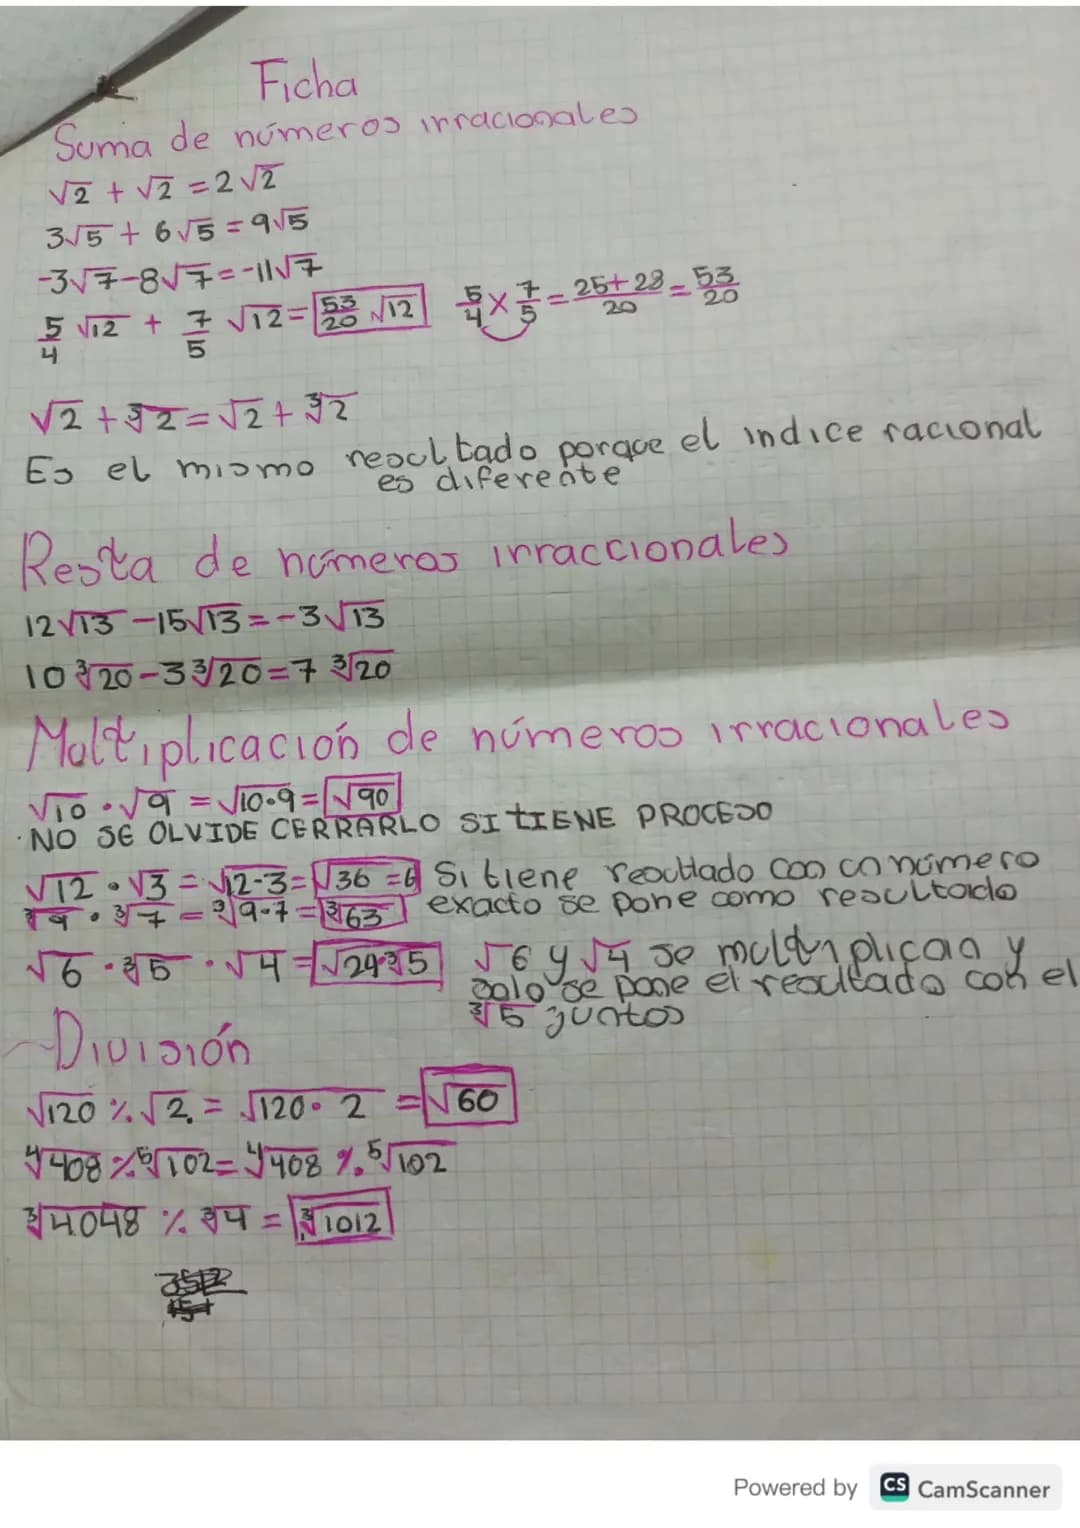 Ficha
Suma de números irracionales
√2 + √2 = 2√2
3√5 + 6√5 = 9√5
-3√7-8√7=-11√7
5/4 √12 + 7/5 √12= 53/20 √12 5/4 × 7/5 = 25+28/20 = 53/20
√2 + ∛2 = √2 + ∛2
Es el mismo resultado porque el indice racional
es diferente
Resta de números irraccionales
12√13 -15√13 = -3√13
10∛20-3∛20=7 ∛20
Multiplicación de números irracionales
√10 · √9 = √10·9 = √90
·NO SE OLVIDE CERRARLO SI tIENE PROCESO
√12 · √3 = √12-3= √36 =6 Si tiene resultado con un número
∛9 · ∛7 = ∛9·7 = ∛63 exacto se pone como resultado
√6 · ∛5 · √4 = √24·∛5 √6 y √4 se multiplican y
solo se pone el resultado con el
∛5 juntos
División
√120 % √2 = √120· 2 = √60
∜408 % ⁵√102= ∜408 %. ⁵√102
∛4048 % ∛4 = ∛1012
Powered by CS CamScanner